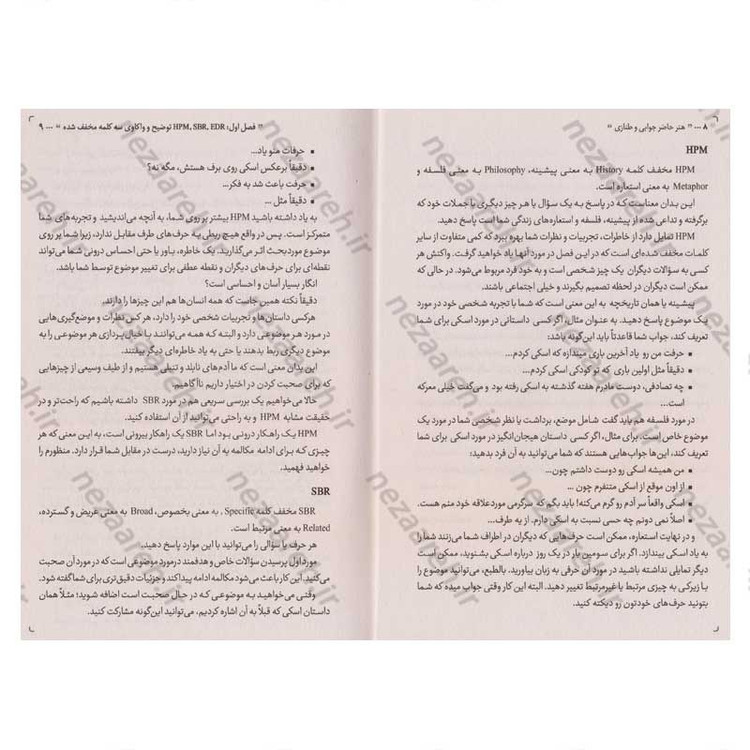 ۸ ... " هنر حاضر جوابی و طنازی "
HPM
HPM مخفف کلمه History به معنی پیشینه، Philosophy به معنی فلسفه و
Metaphor به معنی استعاره است.
این بدان معناست که در پاسخ به یک سؤال یا هر چیز دیگری با جملات خود که
برگرفته و تداعی شده از پیشینه، فلسفه و استعاره‌های زندگی شما است پاسخ دهید.
HPM تمایل دارد از خاطرات، تجربیات و نظرات شما بهره ببرد که کمی متفاوت از سایر
کلمات مخفف شده‌ای است که در این فصل در مورد آنها یاد خواهید گرفت. واکنش هر
کسی به سؤالات دیگران یک چیز شخصی است و به خود فرد مربوط می‌شود. در حالی که
ممکن است دیگران در لحظه تصمیم بگیرند و خیلی اجتماعی باشند.
پیشینه یا همان تاریخچه به این معنی است که شما با تجربه شخصی خود در مورد
یک موضوع پاسخ دهید. به عنوان مثال، اگر کسی داستانی در مورد اسکی برای شما
تعریف کند، جواب شما قاعدتاً باید این‌گونه باشد:
▪ حرفت من رو یاد آخرین باری میندازه که اسکی کردم...
▪ دقیقاً مثل اولین باری که تو کودکی اسکی کردم...
▪ چه تصادفی، دوست مادرم هفته گذشته به اسکی رفته بود و می‌گفت خیلی معرکه
است...
در مورد فلسفه هم باید گفت شامل موضع، برداشت یا نظر شخصی شما در مورد یک
موضوع خاص است. برای مثال، اگر کسی داستان هیجان‌انگیز در مورد اسکی برای شما
تعریف کند، این‌ها جواب‌هایی هستند که شما می‌توانید به آن فرد بدهید:
▪ من همیشه اسکی رو دوست داشتم چون...
▪ از اون موقع از اسکی متنفرم چون ...
▪ اسکی واقعاً سر آدم رو گرم می‌کنه! باید بگم که سرگرمی موردعلاقه خود منم هست.
▪ اصلاً نمی دونم چه حسی نسبت به اسکی دارم. از یه طرف...
و در نهایت استعاره، ممکن است حرف‌هایی که دیگران در اطراف شما می‌زنند شما را
به یاد اسکی بیندازد. اگر برای سومین بار در یک روز درباره اسکی بشنوید، ممکن است
دیگر تمایلی نداشته باشید در مورد آن حرفی به زبان بیاورید. بالطبع، می‌توانید موضوع را
با زیرکی به چیزی مرتبط یا غیرمرتبط تغییر دهید. البته این کار وقتی جواب میده که شما
بتونید حرف‌های خودتون رو دیکته کنید.
" فصل اول: HPM, SBR, EDR توضیح و واکاوی سه کلمه مخفف شده " ... ۹
▪ حرفات منو یاد...
▪ دقیقاً برعکس اسکی روی برف هستش، مگه نه؟
▪ حرفت باعث شد به فکر...
▪ دقیقاً مثل ...
به یاد داشته باشید HPM بیشتر بر روی شما، به آنچه می‌اندیشید و تجربه‌های شما
متمرکز است. پس در واقع هیچ ربطی به حرف‌های طرف مقابل ندارد، زیرا شما بر روی
موضوع موردبحث اثر می‌گذارید. یک خاطره، باور یا حتی احساس درونی شما می‌تواند
نقطه‌ای برای حرف‌های دیگران و نقطه عطفی برای تغییر موضوع توسط شما باشد.
انگار بسیار آسان و احساسی است؟
دقیقاً نکته همین جاست که همه انسان‌ها هم این چیزها را دارند.
هرکسی داستان‌ها و تجربیات شخصی خود را دارد، هر کس نظرات و موضع‌گیری‌هایی
در مورد هر موضوعی دارد و البته که همه می‌توانند با خیال‌پردازی هر موضوعی را به
موضوع دیگری ربط بدهند یا حتی به یاد خاطره‌ای دیگر بیفتند.
این بدان معنی است که ما آدم‌های نابلد و تنبلی هستیم و از طیف وسیعی از چیزهایی
که برای صحبت کردن در اختیار داریم ناآگاهیم.
حالا می‌خواهیم یک بررسی سریعی هم در مورد SBR داشته باشیم که راحت‌تر و در
حقیقت مشابه HPM و به راحتی می‌توانید از آن استفاده کنید.
HPM یک راهکار درونی بود اما SBR یک راهکار بیرونی است، به این معنی که هر
چیزی که برای ادامه مکالمه به آن نیاز دارید، درست در مقابل شما قرار دارد. منظورم را
خواهید فهمید.
SBR
SBR مخفف کلمه Specific , به معنی بخصوص، Broad به معنی عریض و گسترده،
Related به معنی مرتبط است.
هر حرف یا سؤالی را می‌توانید با این موارد پاسخ دهید.
مورد اول پرسیدن سؤالات خاص و هدفمند درمورد موضوعی است که در مورد آن صحبت
می‌کنید. این کار باعث می‌شود مکالمه ادامه پیدا کند و جزئیات دقیق‌تری برای شما گفته شود.
وقتی می‌خواهید به موضوعی که در حال صحبت است اضافه شوید؛ مثلاً همان
داستان اسکی که قبلاً به آن اشاره کردیم، می‌توانید این‌گونه مشارکت کنید.
nezaareh.ir